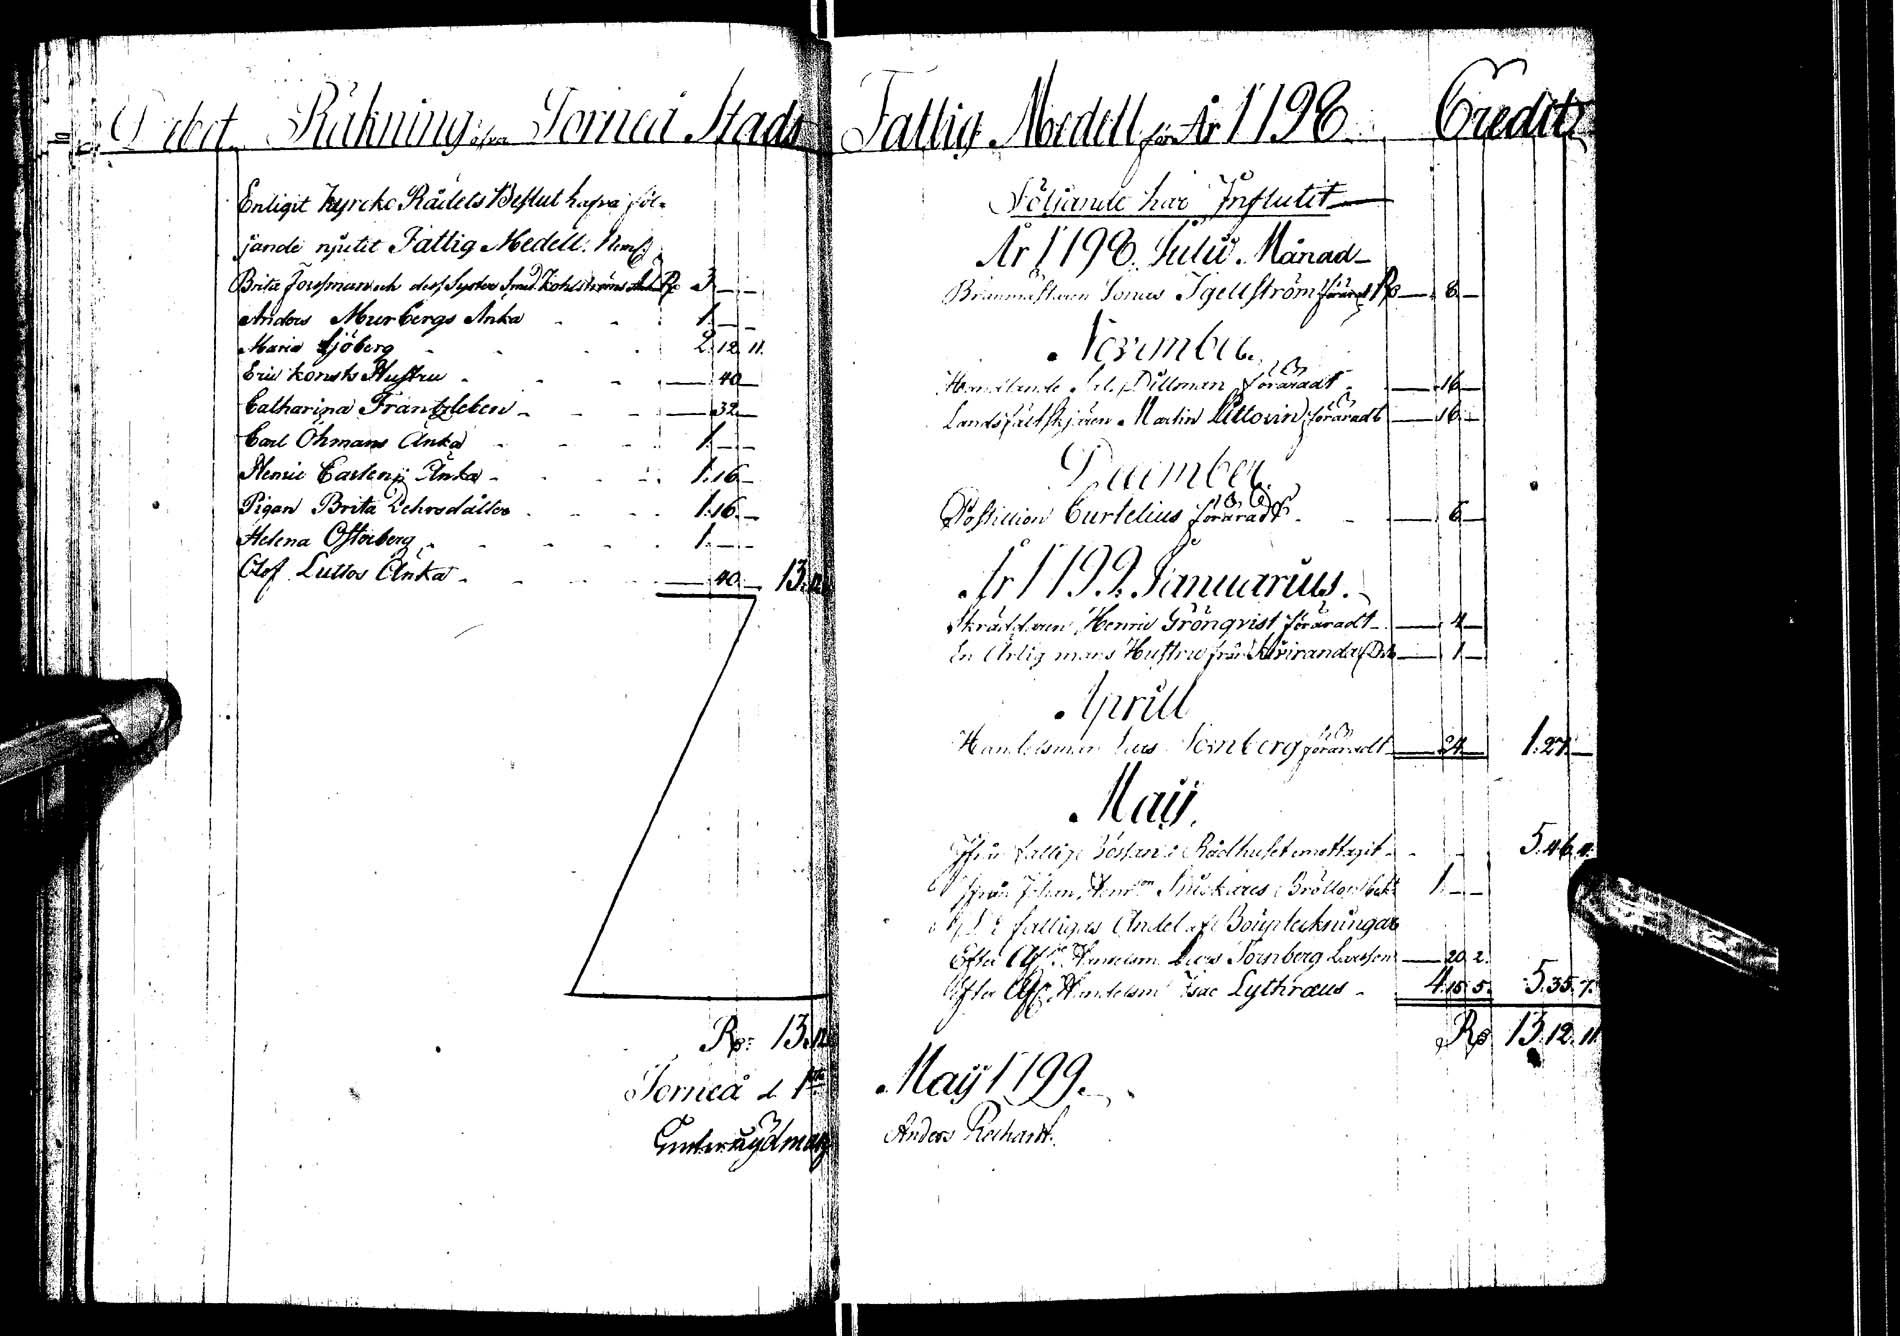 Debet Räkning öfver Torneå Stads
Enligit Kyrcko Rådets Beslut hafva föl-
jande njutit Fattig Medell. Neml:
Brita Forsman och dess Syster Smed Kohlströms Rd 3. — —
Anders Murbergs Änka 1. — —
Maria Sjöberg 2. 12. 11.
Eric Konsts Hustru — 40 —
Catharina Frantzleben — 32 —
Carl Öhmans Änka 1. — —
Henric Carlens Änka 1. 16 —
Pigan Brita Pehrsdåtter 1. 16. —
Helena Österberg 1. — —
Olof Luttos Änka — 40. — 13. 12.
Rd: 13. 12
Torneå d. 1ste
Fattig Medell för År 1798. Credit
Följande har Influtit
År 1798. Julii Månad
Brännmästaren Jonas Igellström förärat Rd — 8. —
November.
Handlande Dillman föräradt — 16 —
Landsfältskjären Martin Littorin föräradt — 16 —
December.
Postillion Curtelius föräradt — 6 —
År 1799. Januarius.
Skräddaren Henric Grönqvist föräradt — 4 —
En Ärlig mans Hustru från — 1 —
Aprill
Handelsman Lars Tornberg föräradt — 24 — 1. 27. —
Maij.
Ifrån fattige Bössan i Rådhuset emottagit 5. 46. 4.
Ifrån Johan Bröllop 1. — —
De fattigas Andel af Boupteckningar
Efter Afl. Handelsm. Lars Tornberg Larsson — 20. 2.
Efter Afl. Handelsm. Isac Lythræus 4. 15. 5. 5. 35. 7.
Rd 13. 12. 11.
Maij 1799.
Anders